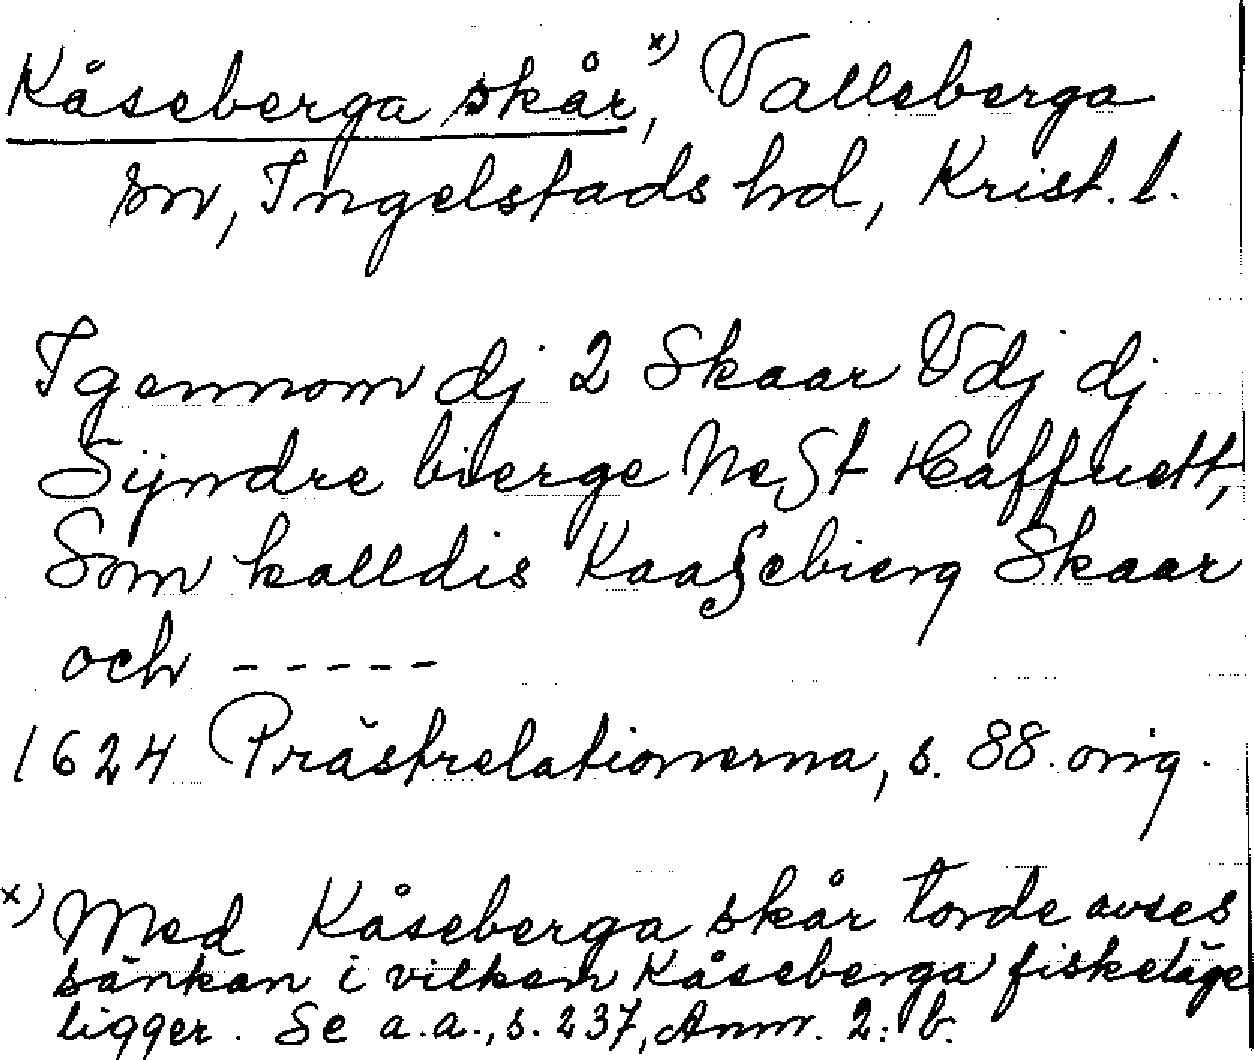 Kåseberga skår, x) Valleberga
sn, Ingelstads hd, Krist. l.
Igennom dj 2 Skaar Vdj dj
Sÿndre bierge Nest Haffuett,
Som kalldis Kaasebierg Skaar
och -----
1624 Prästrelationerna, s. 88. orig.
x) Med Kåseberga skår torde avses
sänkan i vilken Kåseberga fiskeläge
ligger. Se a.a., s. 237, Anm. 2: b.